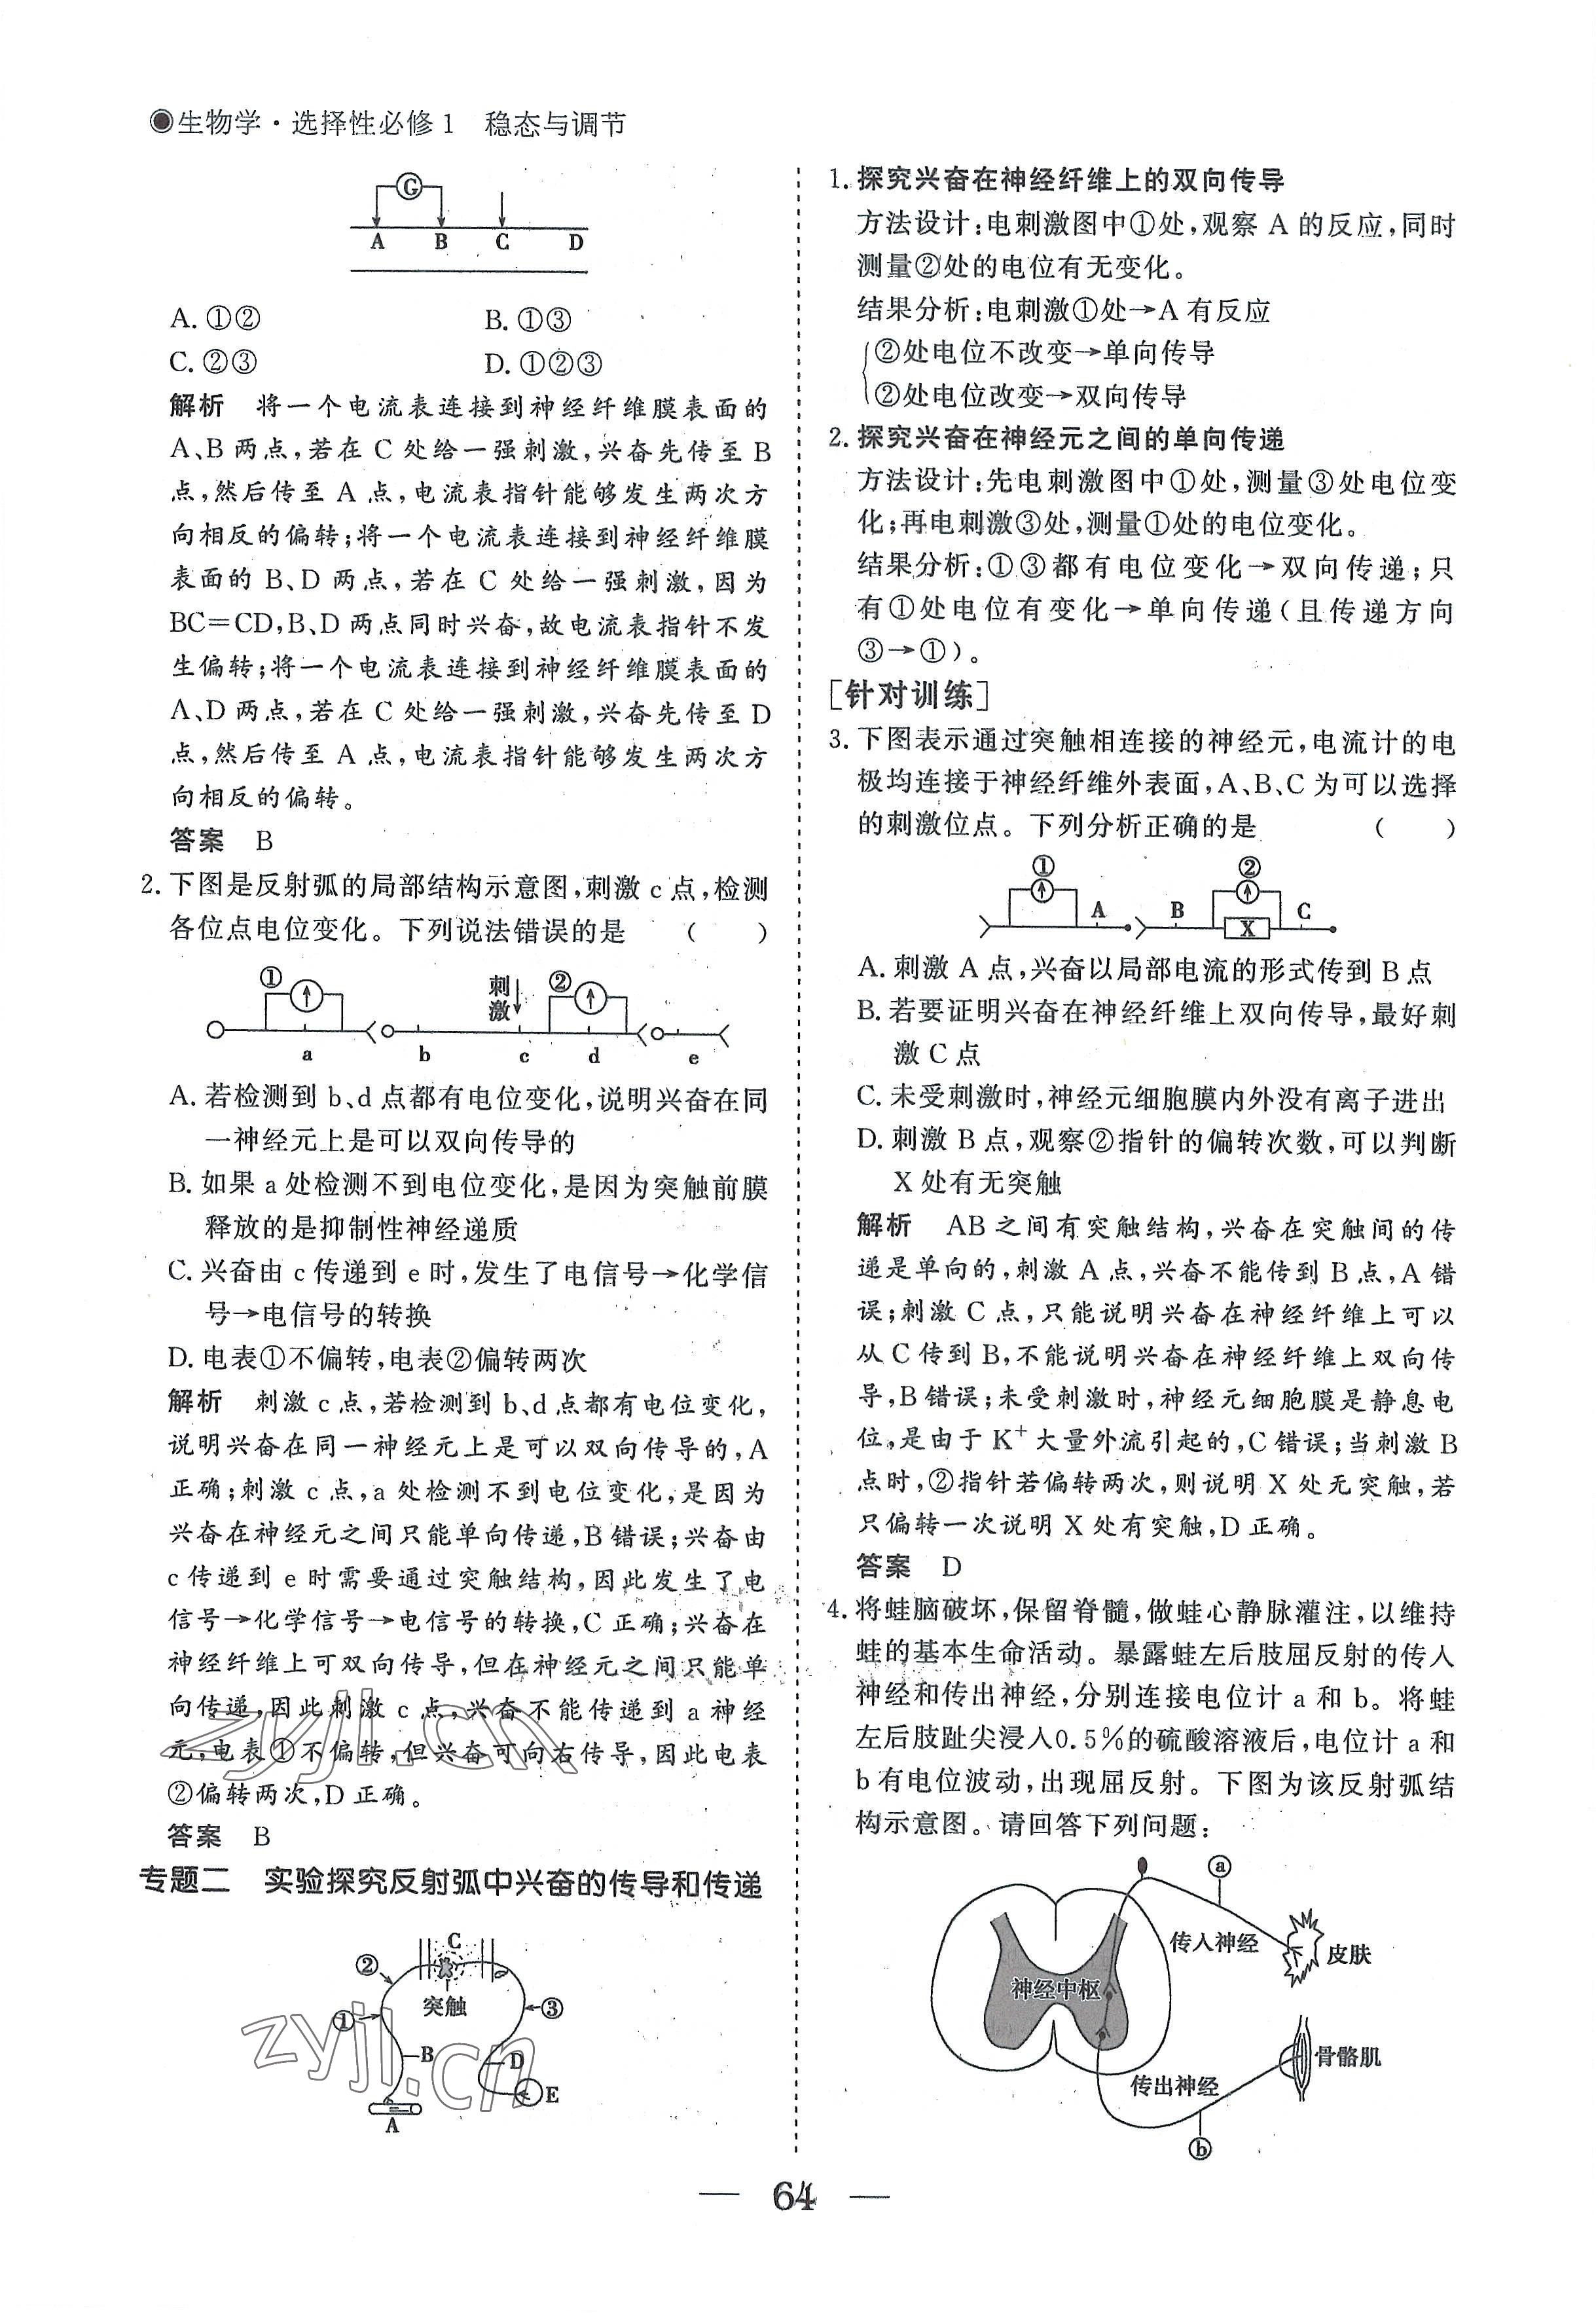 生物学·选择性必修1 稳态与调节
G
A B C D
A.①② B.①③
C.②③ D.①②③
解析 将一个电流表连接到神经纤维膜表面的
A、B两点,若在C处给一强刺激,兴奋先传至B
点,然后传至A点,电流表指针能够发生两次方
向相反的偏转;将一个电流表连接到神经纤维膜
表面的B、D两点,若在C处给一强刺激,因为
BC=CD,B、D两点同时兴奋,故电流表指针不发
生偏转;将一个电流表连接到神经纤维膜表面的
A、D两点,若在C处给一强刺激,兴奋先传至D
点,然后传至A点,电流表指针能够发生两次方
向相反的偏转。
答案 B
2.下图是反射弧的局部结构示意图,刺激c点,检测
各位点电位变化。下列说法错误的是 ( )
① 刺激 ②
a b c d e
A.若检测到b、d点都有电位变化,说明兴奋在同
一神经元上是可以双向传导的
B.如果a处检测不到电位变化,是因为突触前膜
释放的是抑制性神经递质
C.兴奋由c传递到e时,发生了电信号→化学信
号→电信号的转换
D.电表①不偏转,电表②偏转两次
解析 刺激c点,若检测到b、d点都有电位变化,
说明兴奋在同一神经元上是可以双向传导的,A
正确;刺激c点,a处检测不到电位变化,是因为
兴奋在神经元之间只能单向传递,B错误;兴奋由
c传递到e时需要通过突触结构,因此发生了电
信号→化学信号→电信号的转换,C正确;兴奋在
神经纤维上可双向传导,但在神经元之间只能单
向传递,因此刺激c点,兴奋不能传递到a神经
元,电表①不偏转,但兴奋可向右传导,因此电表
②偏转两次,D正确。
答案 B
专题二 实验探究反射弧中兴奋的传导和传递
C
②
突触
① ③
B D
E
A
1.探究兴奋在神经纤维上的双向传导
方法设计:电刺激图中①处,观察A的反应,同时
测量②处的电位有无变化。
结果分析:电刺激①处→A有反应
②处电位不改变→单向传导
②处电位改变→双向传导
2.探究兴奋在神经元之间的单向传递
方法设计:先电刺激图中①处,测量③处电位变
化;再电刺激③处,测量①处的电位变化。
结果分析:①③都有电位变化→双向传递;只
有①处电位有变化→单向传递(且传递方向
③→①)。
[针对训练]
3.下图表示通过突触相连接的神经元,电流计的电
极均连接于神经纤维外表面,A、B、C为可以选择
的刺激位点。下列分析正确的是 ( )
① ②
A B X C
A.刺激A点,兴奋以局部电流的形式传到B点
B.若要证明兴奋在神经纤维上双向传导,最好刺
激C点
C.未受刺激时,神经元细胞膜内外没有离子进出
D.刺激B点,观察②指针的偏转次数,可以判断
X处有无突触
解析 AB之间有突触结构,兴奋在突触间的传
递是单向的,刺激A点,兴奋不能传到B点,A错
误;刺激C点,只能说明兴奋在神经纤维上可以
从C传到B,不能说明兴奋在神经纤维上双向传
导,B错误;未受刺激时,神经元细胞膜是静息电
位,是由于K⁺大量外流引起的,C错误;当刺激B
点时,②指针若偏转两次,则说明X处无突触,若
只偏转一次说明X处有突触,D正确。
答案 D
4.将蛙脑破坏,保留脊髓,做蛙心静脉灌注,以维持
蛙的基本生命活动。暴露蛙左后肢屈反射的传入
神经和传出神经,分别连接电位计a和b。将蛙
左后肢趾尖浸入0.5%的硫酸溶液后,电位计a和
b有电位波动,出现屈反射。下图为该反射弧结
构示意图。请回答下列问题:
ⓐ
传入神经
皮肤
神经中枢
骨骼肌
传出神经
ⓑ
— 64 —
zyjl.cn
zyjl.cn